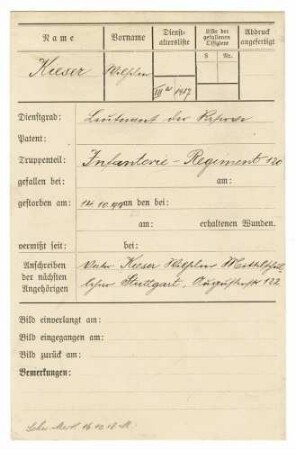 Name Vorname Dienstaltersliste Liste der gefallenen Offiziere Abdruck angefertigt
S Nr.
Kieser Wilhelm III 1917
Dienstgrad: Leutnant der Reserve
Patent:
Truppenteil: Infanterie-Regiment 120
gefallen bei: am:
gestorben am: 14.10. an den bei:
am: erhaltenen Wunden.
vermißt seit: bei:
Anschreiben der nächsten Angehörigen
Kieser Wilhelm Mittelschul
lehrer Stuttgart, Augustenstr 122
Bild einverlangt am:
Bild eingegangen am:
Bild zurück am:
Bemerkungen: